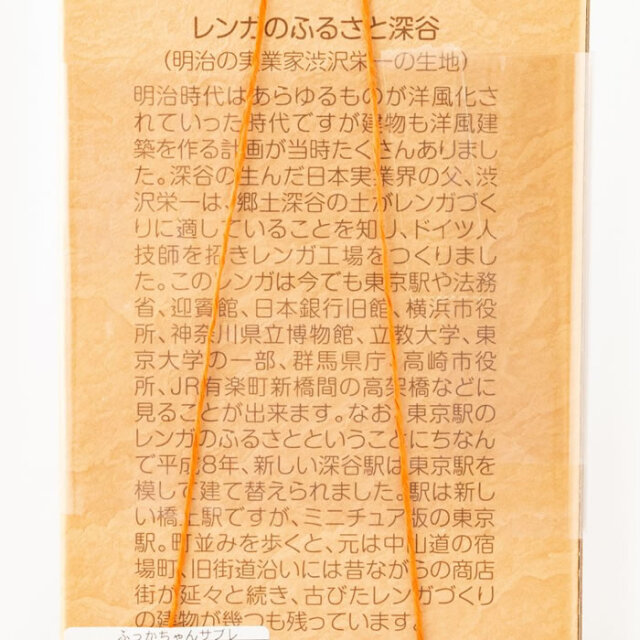 レンガのふるさと深谷
(明治の実業家渋沢栄一の生地)
明治時代はあらゆるものが洋風化さ
れていった時代ですが建物も洋風建
築を作る計画が当時たくさんありまし
た。深谷の生んだ日本実業界の父、渋
沢栄一は、郷土深谷の土がレンガづく
りに適していることを知り、ドイツ人
技師を招きレンガ工場をつくりまし
た。このレンガは今でも東京駅や法務
省、迎賓館、日本銀行旧館、横浜市役
所、神奈川県立博物館、立教大学、東
京大学の一部、群馬県庁、高崎市役
所、JR有楽町新橋間の高架橋などに
見ることが出来ます。なお、東京駅の
レンガのふるさとということにちなん
で平成8年、新しい深谷駅は東京駅を
模して建て替えられました。駅は新し
い橋上駅ですが、ミニチュア版の東京
駅。町並みを歩くと、元は中山道の宿
場町、旧街道沿いには昔ながらの商店
街が延々と続き、古びたレンガづくり
の建物が幾つも残っています。
ふっかちゃんサブレ